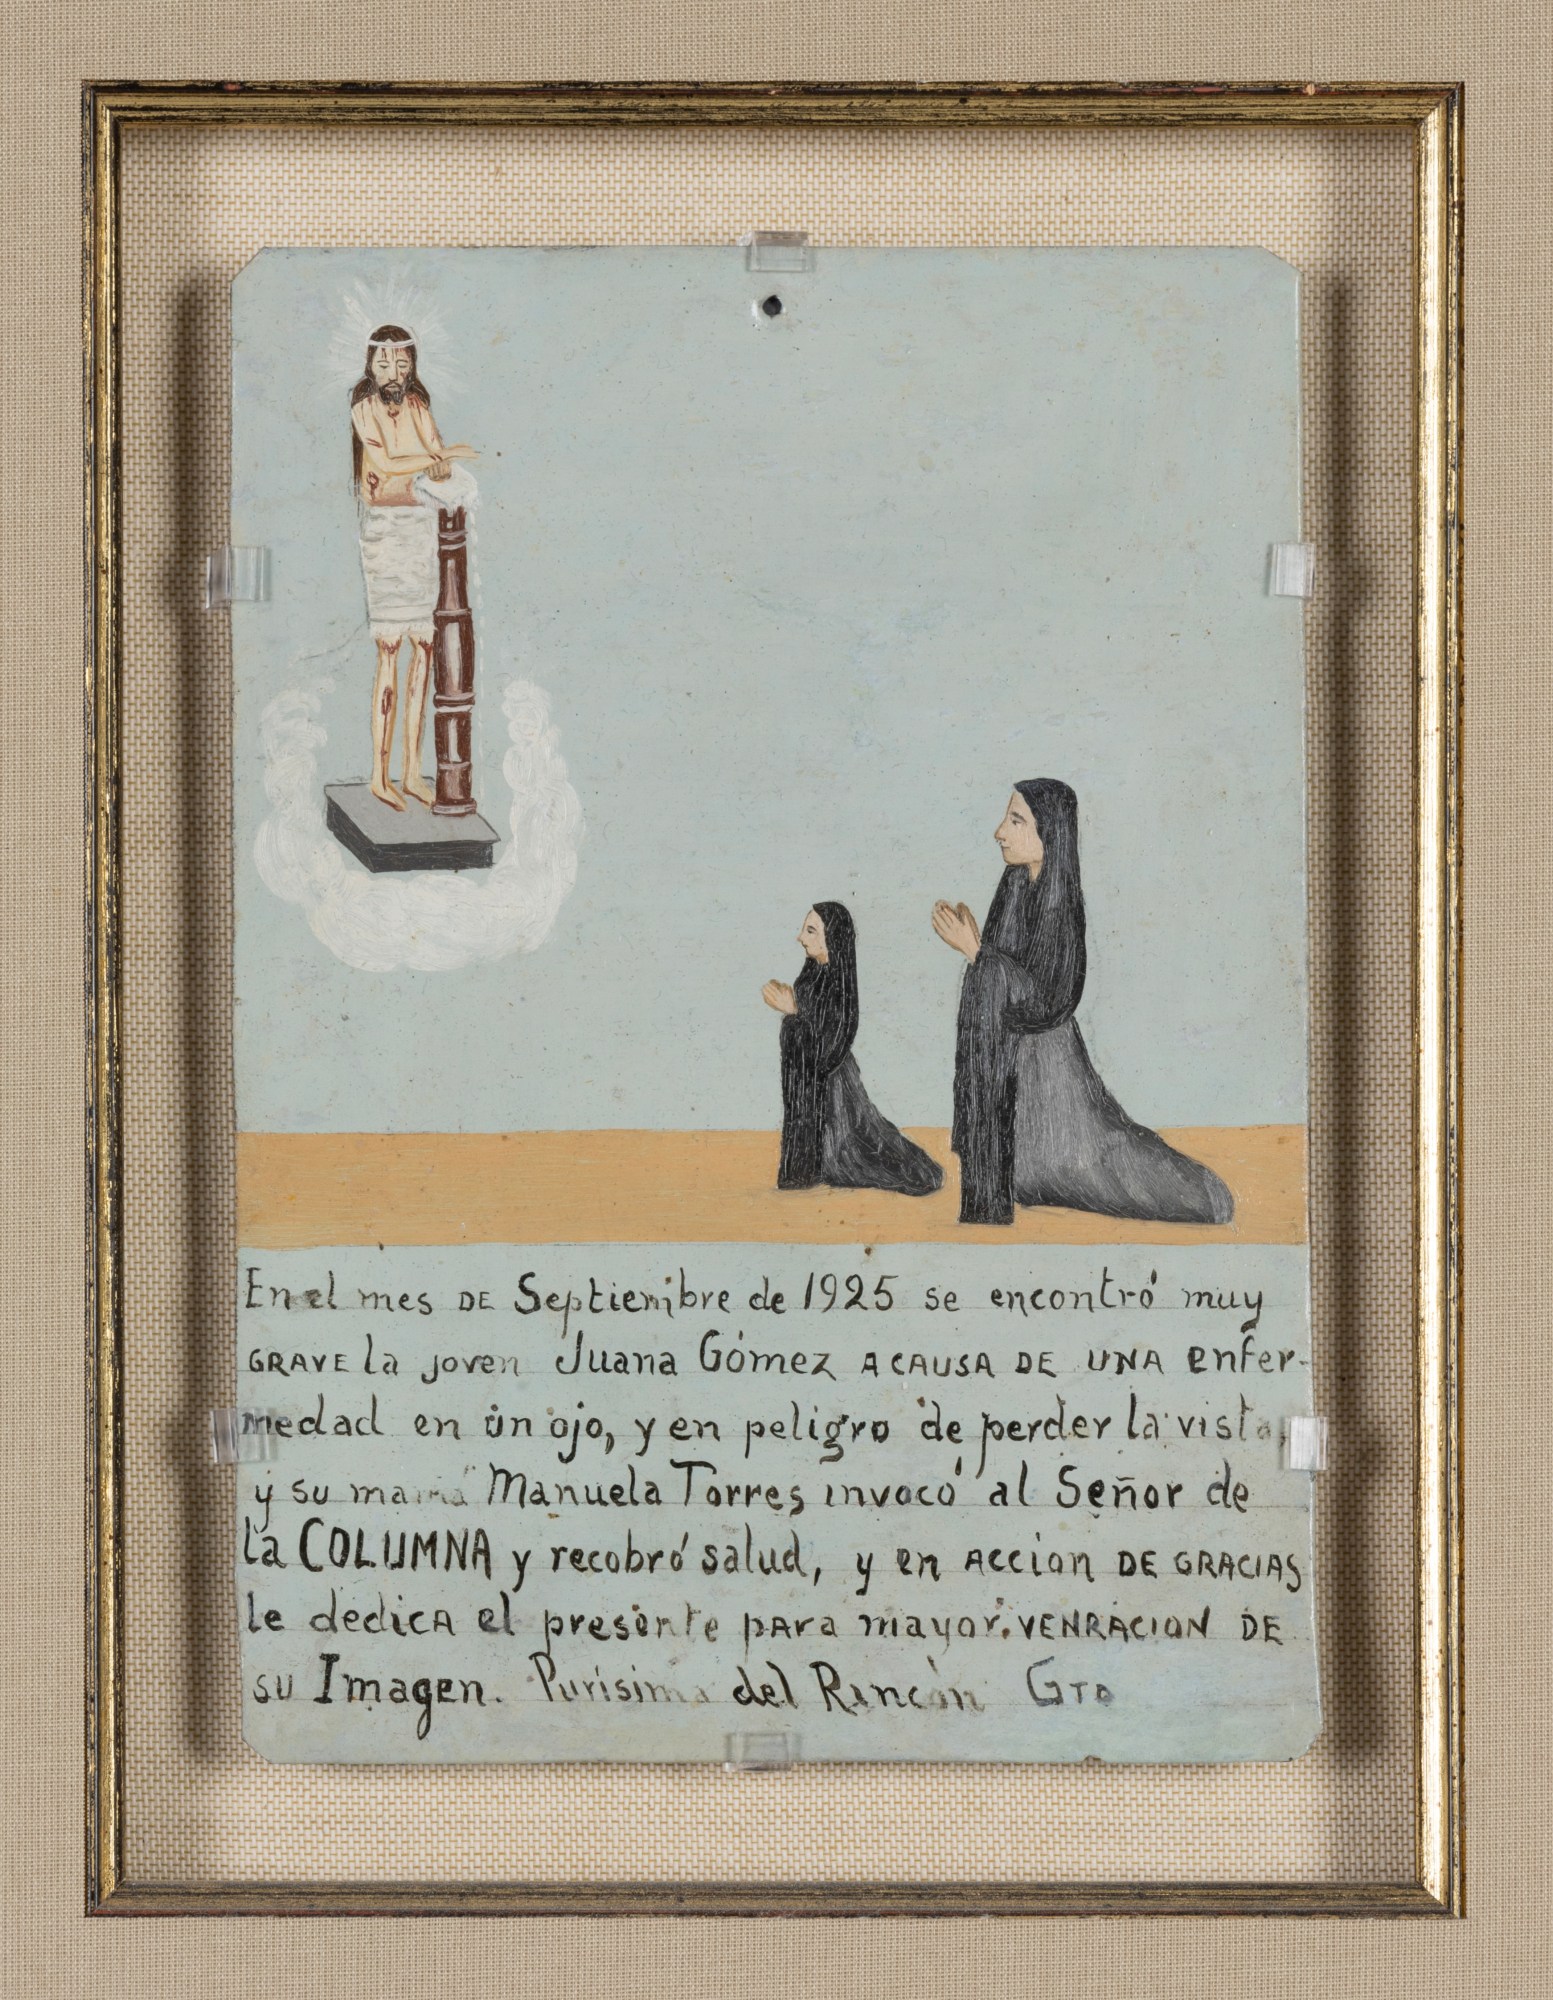 En el mes DE Septiembre de 1925 se encontró muy
GRAVE la joven Juana Gómez A CAUSA DE UNA enfer-
medad en ún ojo, y en peligro de perder la vista,
y su mamá Manuela Torres invocó al Señor de
la COLUMNA y recobró salud, y en ACCion DE GRACIAS
le dedicA el presente pARa mayor. VENRACION DE
su Imagen. Purísima del Rincón GTo